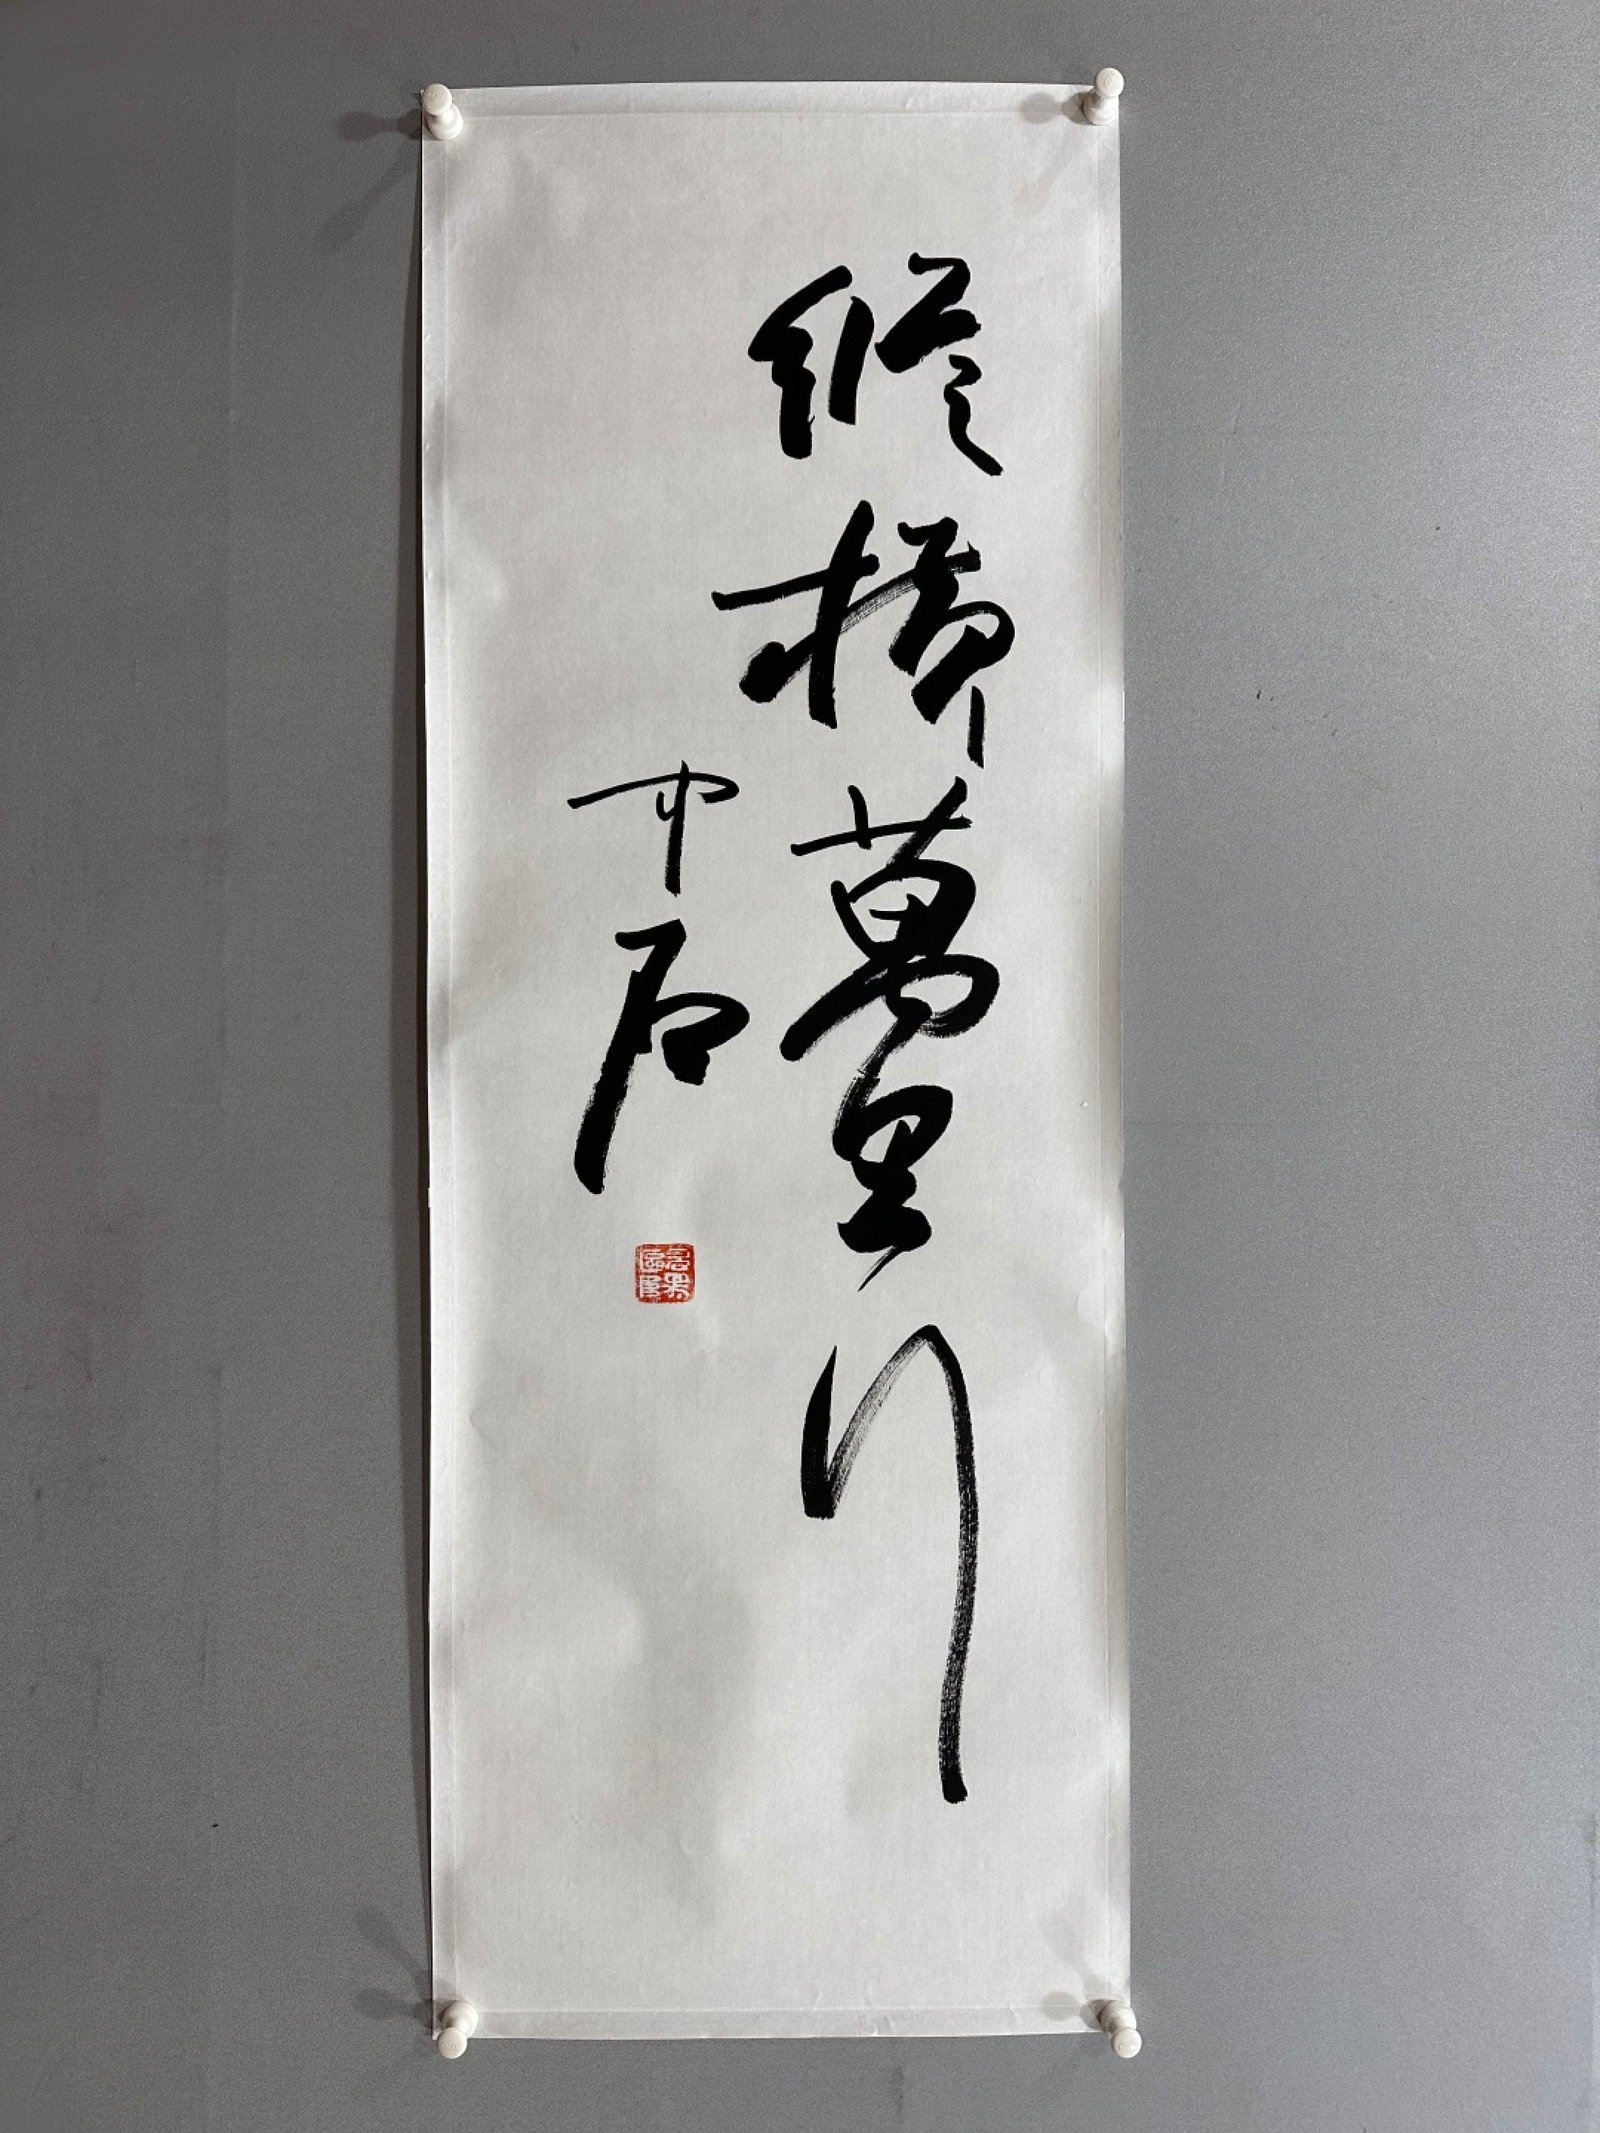 縱橫萬里行
中石